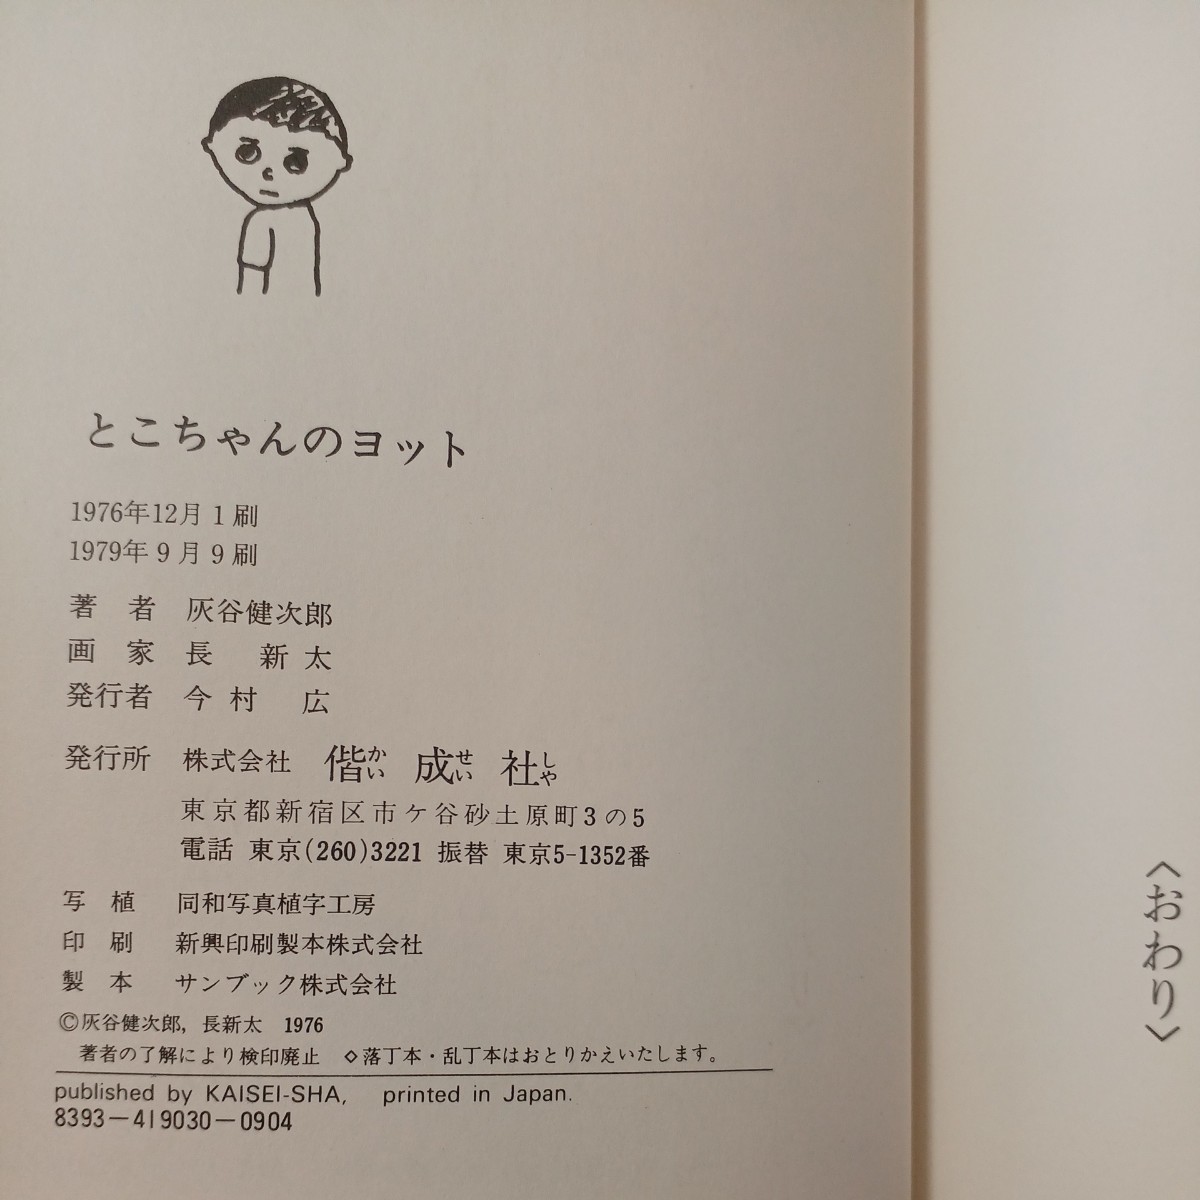 とこちゃんのヨット
1976年12月1刷
1979年9月9刷
著者 灰谷健次郎
画家 長 新太
発行者 今村 広
発行所 株式会社 偕成社
かい せい しゃ
東京都新宿区市ケ谷砂土原町3の5
電話 東京(260)3221 振替 東京5-1352番
写植 同和写真植字工房
印刷 新興印刷製本株式会社
製本 サンブック株式会社
©灰谷健次郎, 長新太 1976
著者の了解により検印廃止 ◇落丁本・乱丁本はおとりかえいたします。
published by KAISEI-SHA, printed in Japan.
8393-419030-0904
〈おわり〉